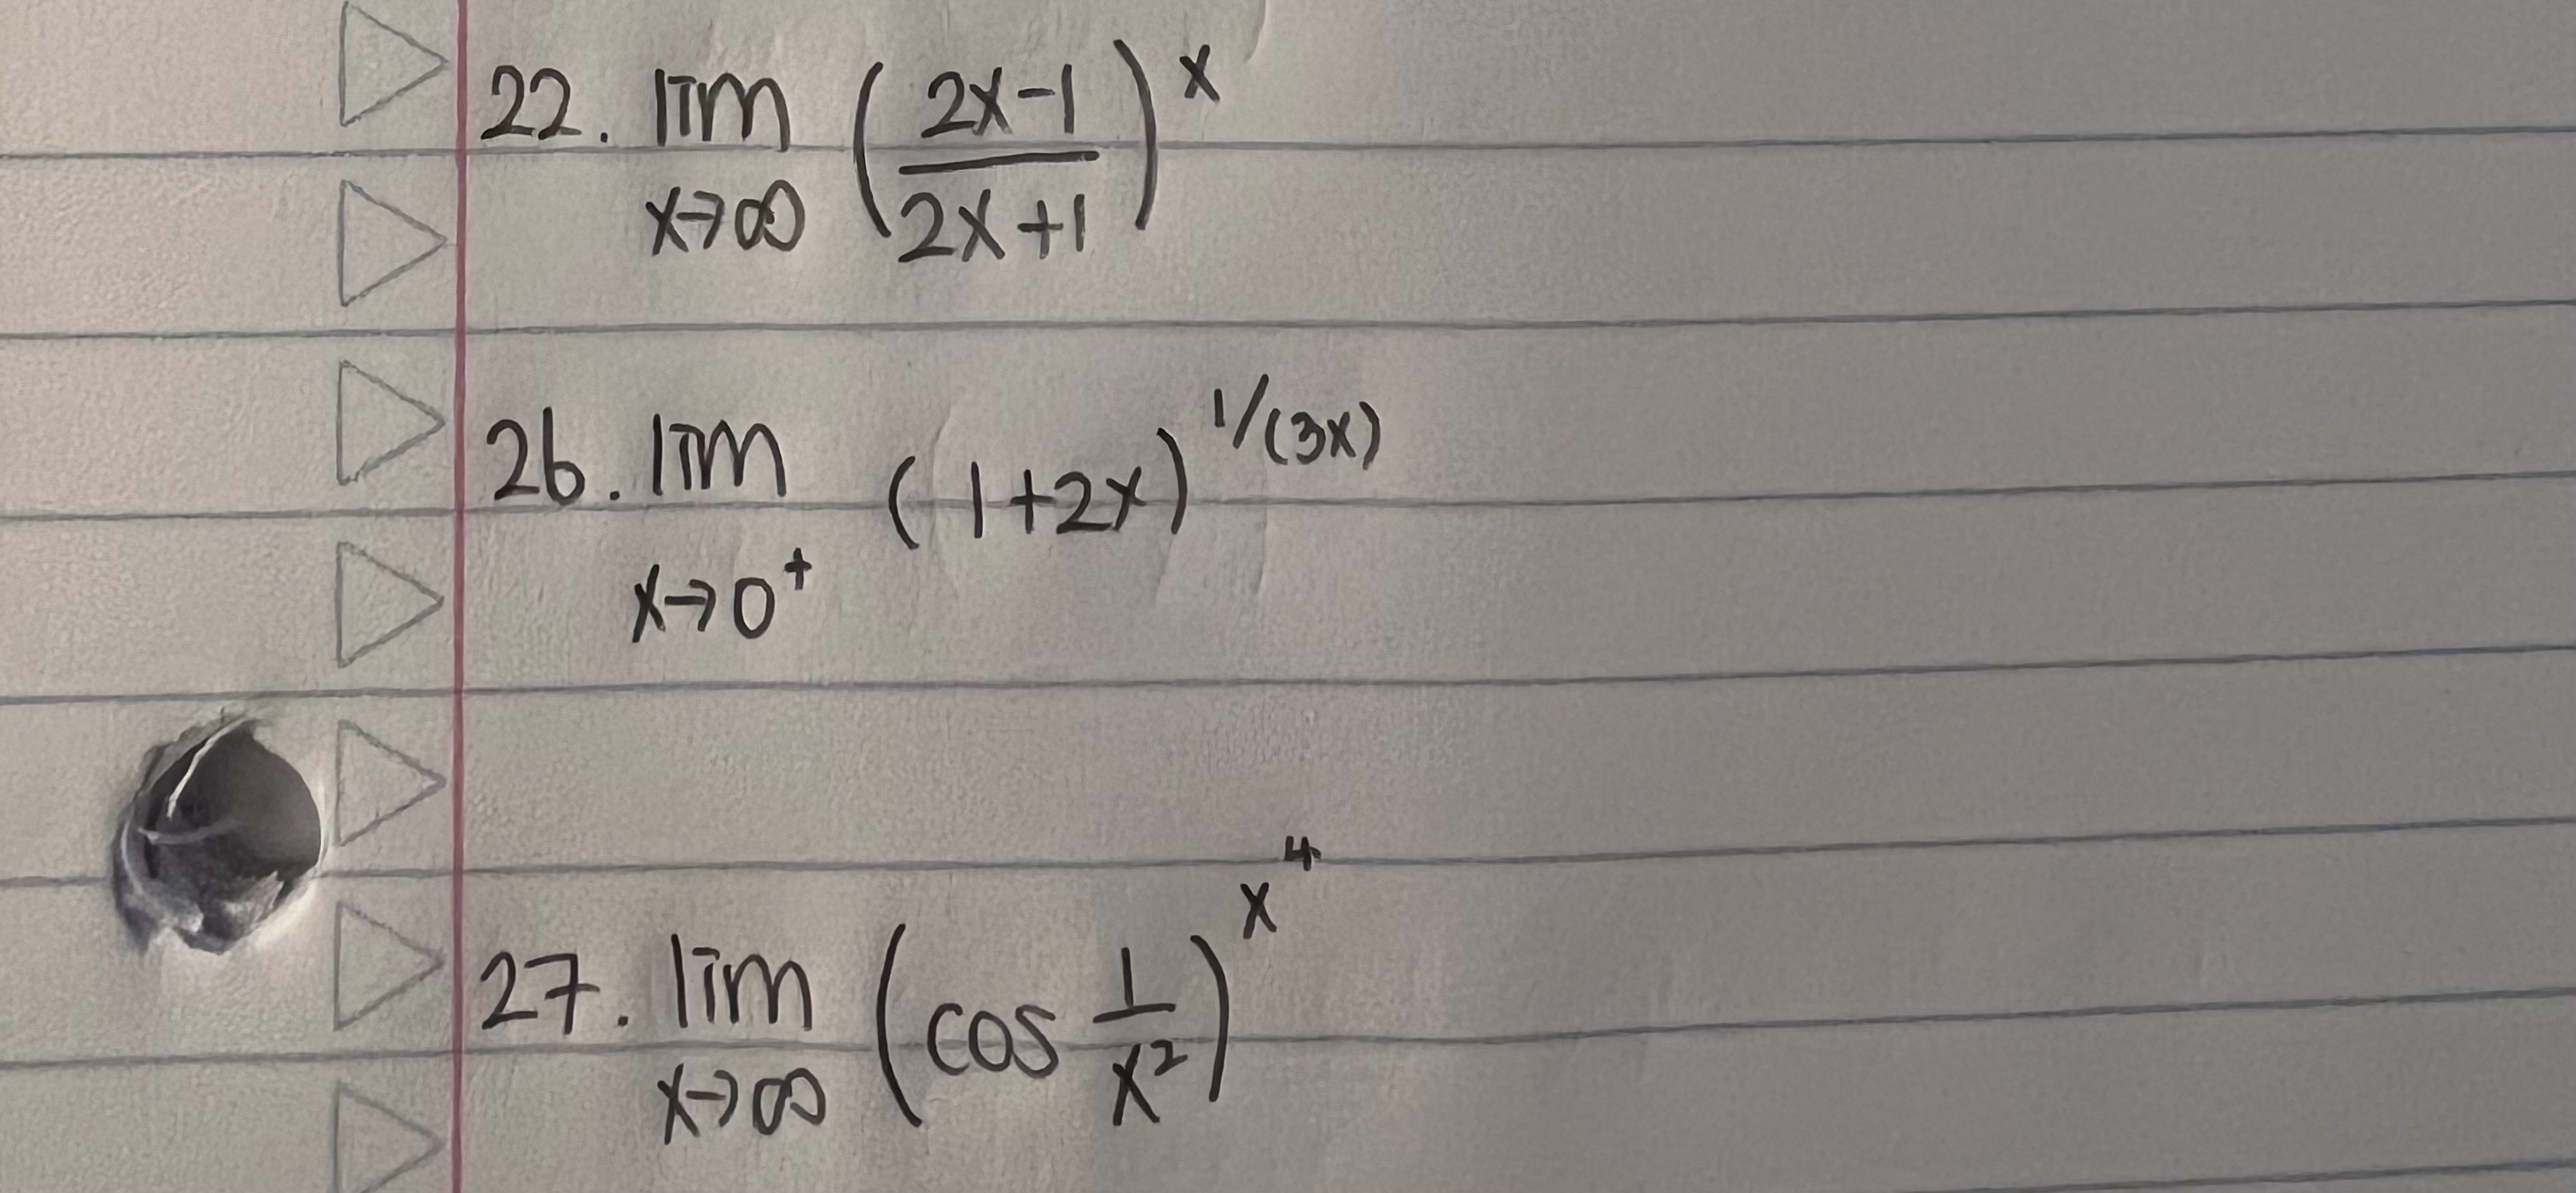 22. lim (2x-1 / 2x+1)^x
x→∞
26. lim (1+2x)^1/(3x)
x→0⁺
27. lim (cos 1/x²)^x⁴
x→∞